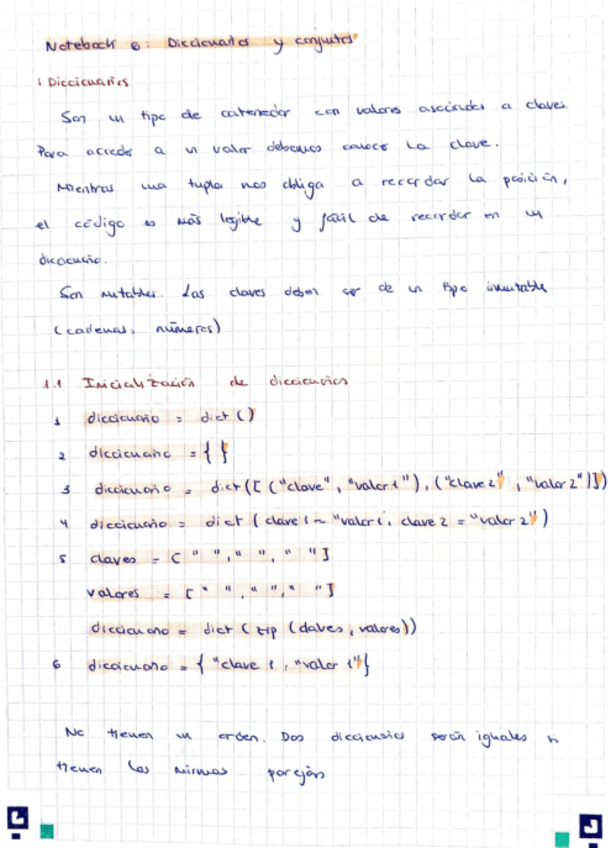 Notebook 6: Diccionarios y conjuntos
1 Diccionarios
Son un tipo de contenedor con valores asociados a claves.
Para acceder a un valor debemos conocer la clave.
Mientras una tupla nos obliga a recordar la posición,
el código es más legible y fácil de recordar en un
diccionario.
Son mutables. Las claves deben ser de un tipo inmutable
(cadenas, números)
1.1 Inicialización de diccionarios
1 diccionario = dict()
2 diccionario = { }
3 diccionario = dict([("clave", "valor 1"), ("clave 2", "valor 2")])
4 diccionario = dict(clave 1 = "valor 1", clave 2 = "valor 2")
5 claves = [" ", " ", " "]
valores = [" ", " ", " "]
diccionario = dict(zip(claves, valores))
6 diccionario = {"clave 1, "valor 1"}
No tienen un orden. Dos diccionarios serán iguales si
tienen las mismas parejas